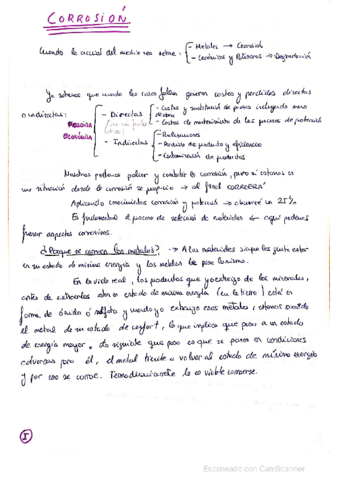 CORROSIÓN
Cuando la acción del medio va sobre: - Metales → Corrosión
- Cerámicos y Plásticos → Degradación
Ya sabemos que cuando las cosas fallan generan costes y pérdidas directas
o indirectas:
Pérdidas
Económicas
- Directas
- Costes y sustitución de piezas incluyendo mano
de obra
- Costes de mantenimiento de los procesos de protección
- Indirectas
- Reclamaciones
- Pérdida de producto y eficiencia
- Contaminación de productos
Nosotros podemos paliar y controlar la corrosión, pero si estamos en
una situación donde la corrosión es propicia → al final CORROERÁ
Aplicando conocimientos corrosión y potencial → ahorraré un 25%
Es fundamental el proceso de selección de materiales ← aquí podemos
prever aspectos corrosivos.
¿Porque se corroen los metales? → A los materiales siempre les gusta estar
en su estado de mínima energía y los metales les pasa lo mismo.
En la vida real, los productos que yo extraigo de los minerales,
antes de extraerlos están en estado de mínima energía (en la tierra) están en
forma de óxido ó sulfato y cuando yo extraigo esos metales, estamos sacando
el metal de su estado de confort, lo que implica que pasa a un estado
de energía mayor. Lo siguiente que pasa es que se ponen en condiciones
adversas para él, el metal tiende a volver al estado de mínima energía
y por eso se corroe. Termodinámicamente lo es viable corroerse.
1
Escaneado con CamScanner